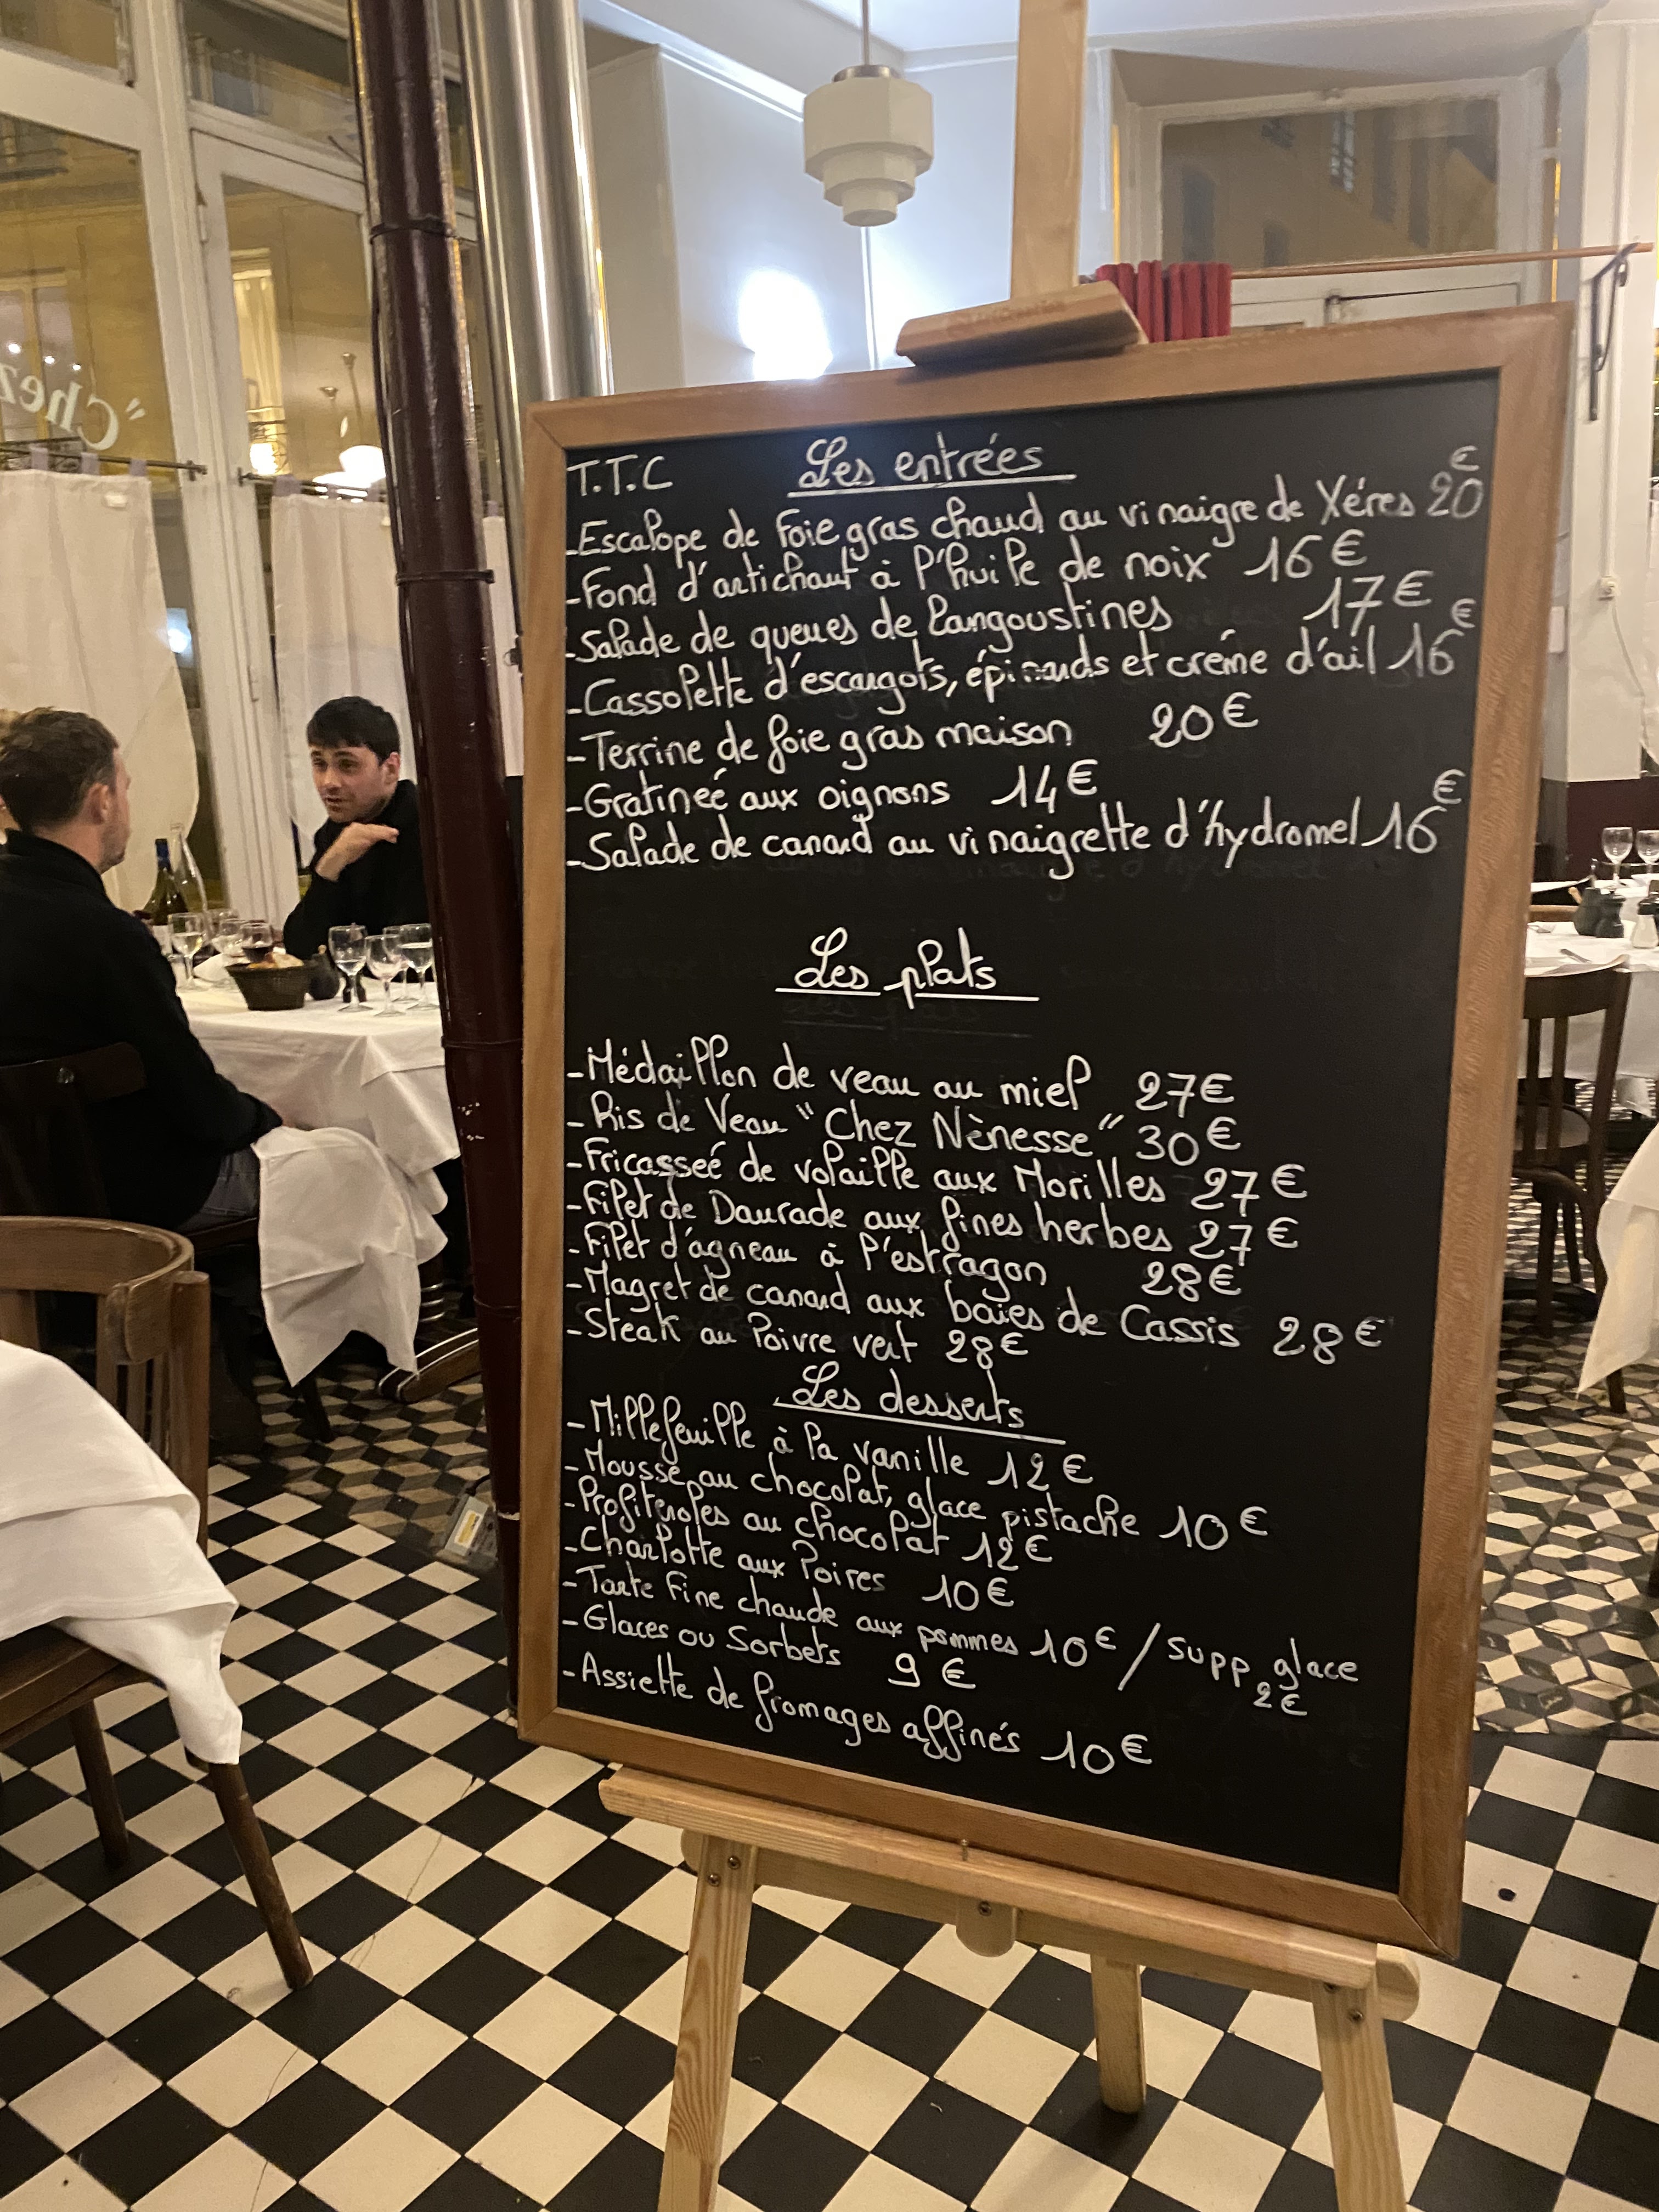 "Chez
T.T.C Les entrées
-Escalope de Foie gras chaud au vinaigre de Xéres 20€
-Fond d'artichaut à l'huile de noix 16€
-Salade de queues de langoustines 17€
-Cassolette d'escargots, épinards et crème d'ail 16€
-Terrine de foie gras maison 20€
-Gratineé aux oignons 14€
-Salade de canard au vinaigrette d'hydromel 16€
Les plats
-Médaillon de veau au miel 27€
-Ris de Veau "Chez Nènesse" 30€
-Fricasseé de volaille aux Morilles 27€
-Filet de Daurade aux fines herbes 27€
-Filet d'agneau à l'estragon 28€
-Magret de canard aux baies de Cassis 28€
-Steak au Poivre vert 28€
Les desserts
-Millefeuille à la vanille 12€
-Mousse au chocolat, glace pistache 10€
-Profiteroles au chocolat 12€
-Charlotte aux Poires 10€
-Tarte Fine chaude aux pommes 10€ / Supp glace 2€
-Glaces ou Sorbets 9€
-Assiette de fromages affinés 10€